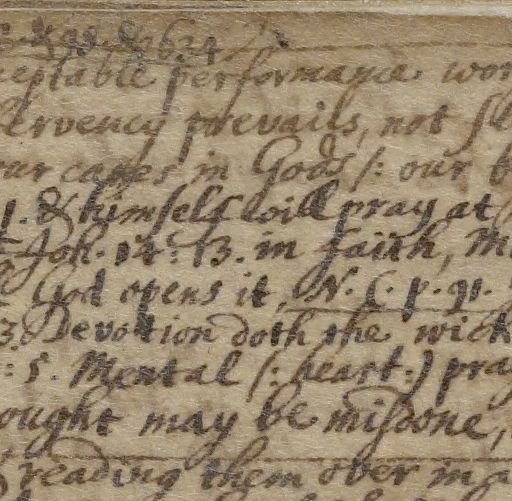 ceptable performance. wor
fervency prevails, not
our cases in Gods /: our b
1. & himself will pray at
Joh. 14: 13. in faith, M
God opens it, W. C. p. 91.
3. Devotion doth the wick
: 5. Mental (: heart:) pray
ought may be misdone,
reading them over in a